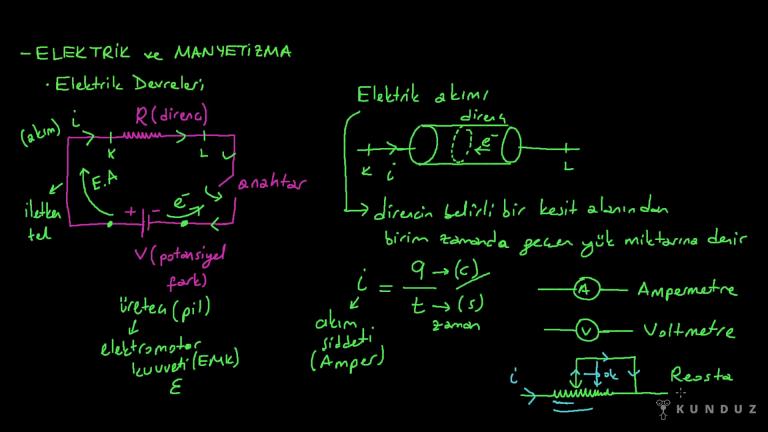 - ELEKTRİK ve MANYETİZMA
· Elektrik Devreleri
i
R(direnç)
(akım)
K
L
E.A
anahtar
e-
iletken
tel
+
-
V(potansiyel
fark)
üreteç(pil)
elektromotor
kuvveti(EMK)
ε
Elektrik akımı
direnç
e-
K
i
L
direncin belirli bir kesit alanından
birim zamanda geçen yük miktarına denir
i = q/t
(C)
(s)
zaman
akım
şiddeti
(Amper)
A Ampermetre
V Voltmetre
i
ok
Reosta
KUNDUZ